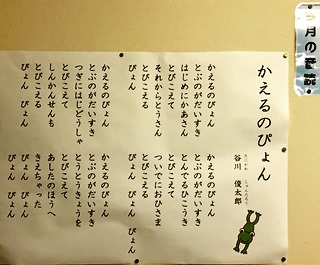 月の音読
かえるのぴょん
谷川 俊太郎
たにかわ しゅんたろう
かえるのぴょん
とぶのがだいすき
はじめにかあさん
とびこえて
それからとうさん
とびこえる
ぴょん
かえるのぴょん
とぶのがだいすき
つぎにはじどうしゃ
とびこえて
しんかんせんも
とびこえる
ぴょん ぴょん
かえるのぴょん
とぶのがだいすき
とんでるひこうき
とびこえて
ついでにおひさま
とびこえる
ぴょん ぴょん ぴょん
かえるのぴょん
とぶのがだいすき
とうとうきょうを
とびこえて
あしたのほうへ
きえちゃった
ぴょん ぴょん ぴょん ぴょん